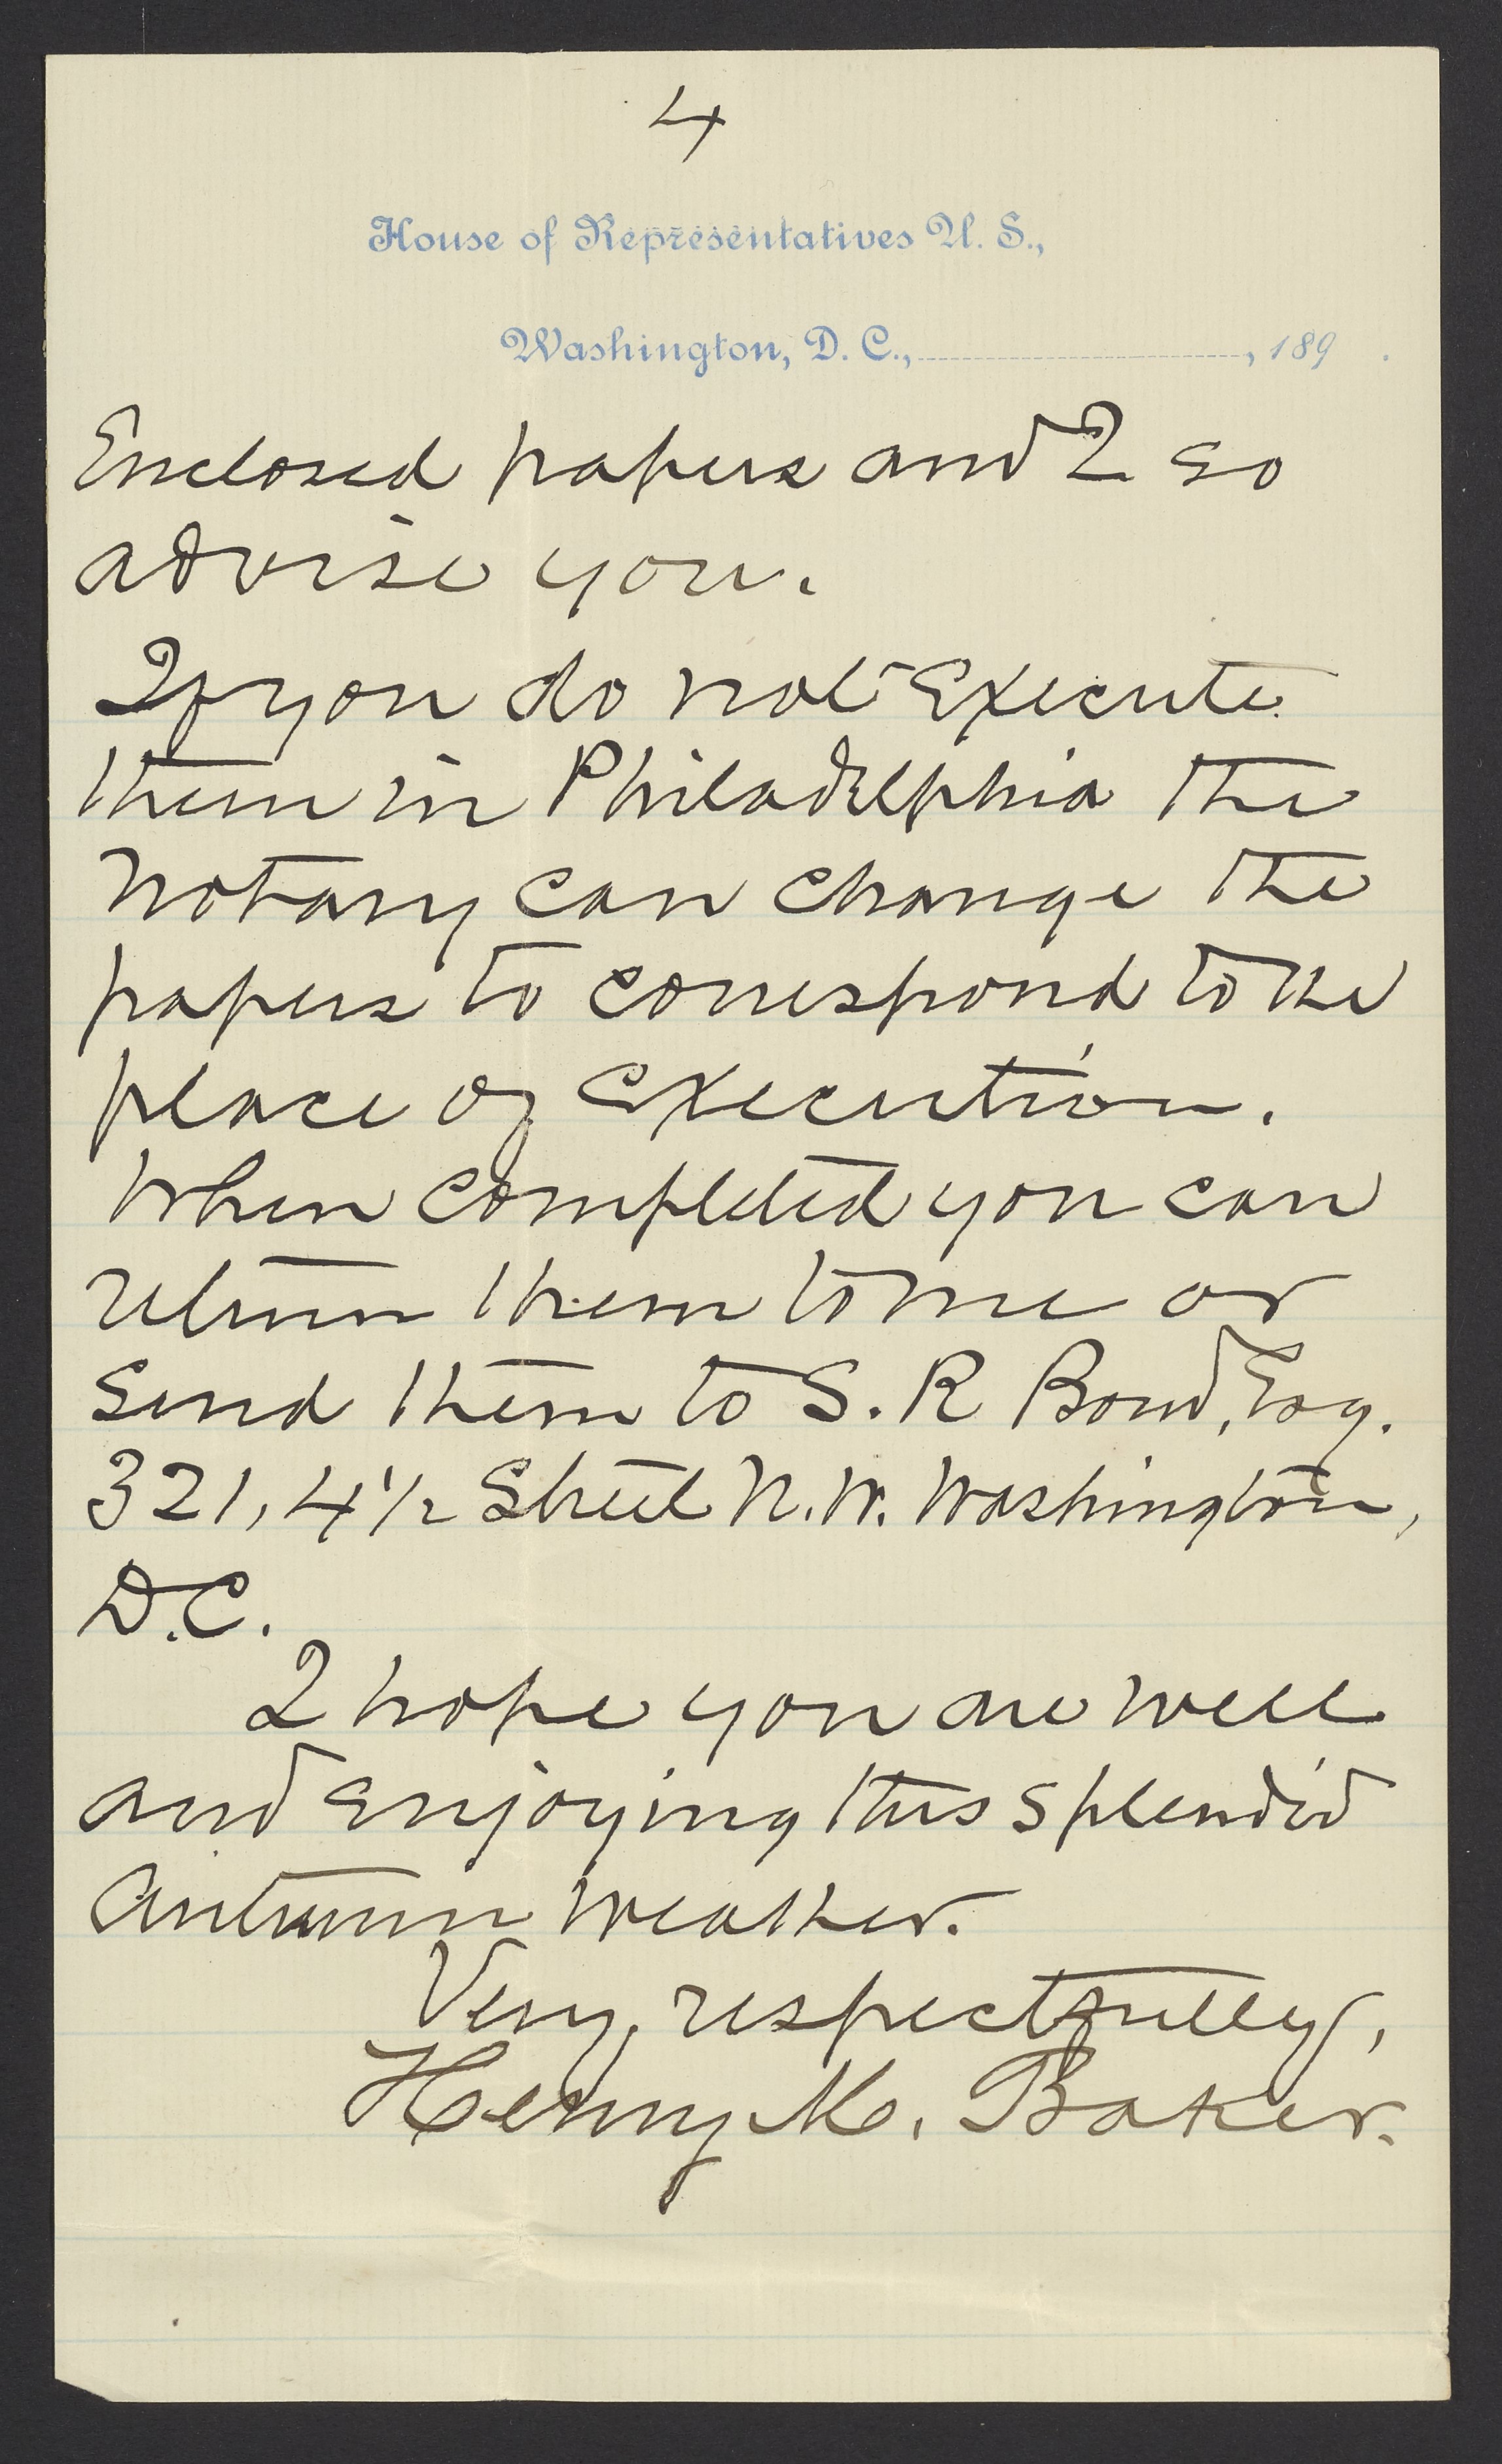 4
House of Representatives U. S.,
Washington, D. C., , 189 .
Enclosed papers and I so
advise you.
If you do not Execute
them in Philadelphia the
Notary can change the
papers to correspond to the
place of Execution.
When completed you can
return them to me or
send them to S. R Bond, Esq.
321, 4 1/2 Street N. W. Washington,
D.C.
I hope you are well
and enjoying this splendid
Autumn weather.
Very respectfully,
Henry M. Baker.